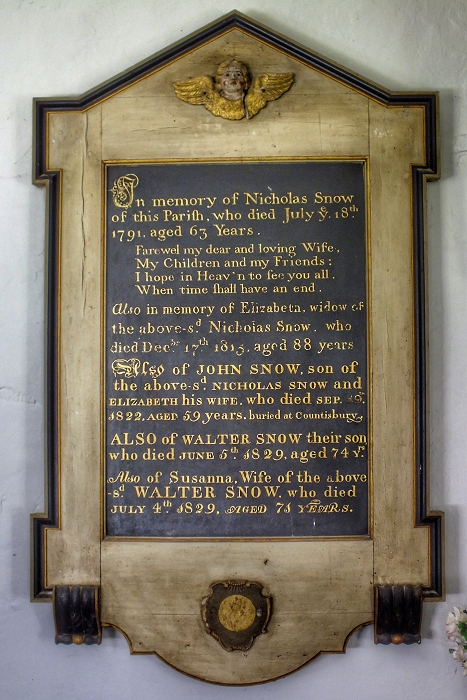 In memory of Nicholas Snow
of this Pariſh, who died July yͤ. 18th
1791, aged 63 Years.
Farewel my dear and loving Wife,
My Children and my Friends:
I hope in Heav'n to ſee you all,
When time ſhall have an end.
Also in memory of Elizabeth, widow of
the above-sd Nicholas Snow. who
died Decbr 17th 1815, aged 88 years
Also of JOHN SNOW, son of
the above-sd NICHOLAS SNOW and
ELIZABETH his WIFE, who died SEP.
1822, AGED 59 years. buried at Countisbury.
ALSO of WALTER SNOW their son
who died JUNE 5th 1829, aged 74 Yrs
Also of Susanna, Wife of the above
-sd WALTER SNOW, who died
JULY 4th 1829, AGED 71 YEARS.